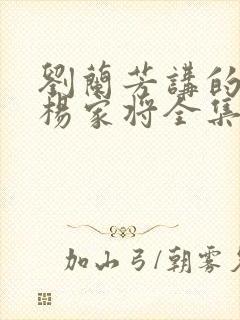 劉蘭芳講的
楊家將全集
加山弓/朝雾